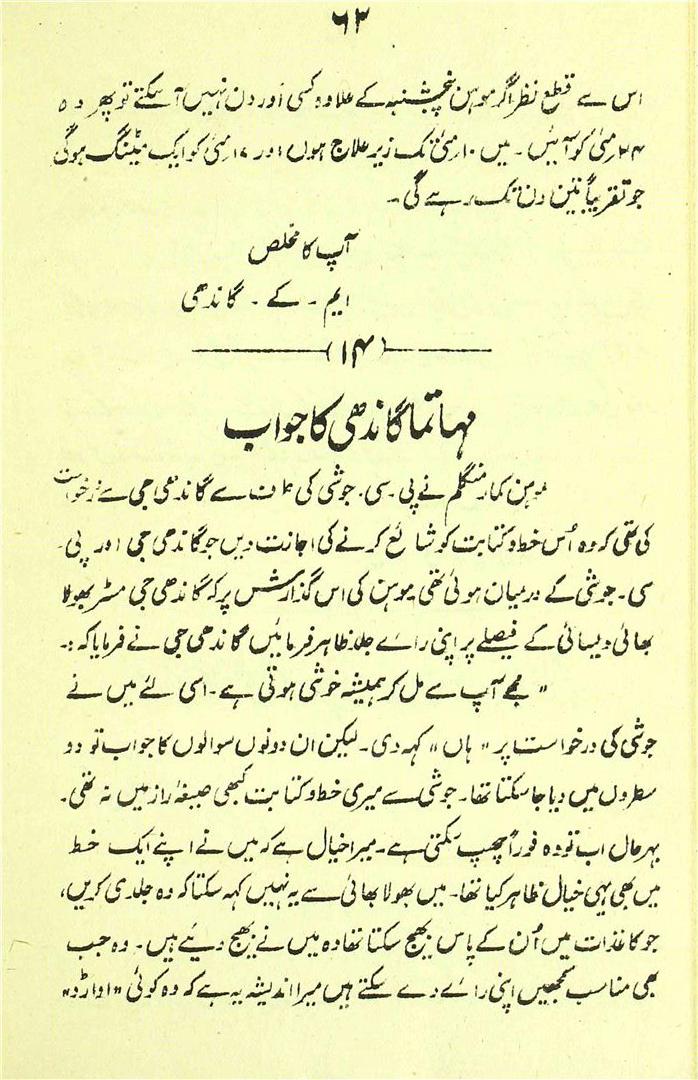 ۶۳
اس سے قطع نظر اگر موہن پنجشنبہ کے علاوہ کسی اور دن نہیں آ سکتے تو پھر وہ
۲۴ مئی کو آئیں۔ میں ۱۰ مئی تک زیر علاج ہوں اور ۱۷ مئی کو ایک مٹینگ ہوگی
جو تقریباً تین دن تک رہے گی۔
آپ کا مخلص
ایم۔ کے۔ گاندھی
(۱۴)
مہاتما گاندھی کا جواب
موہن کمار منگلم نے پی۔ سی۔ جوشی کی طرف سے گاندھی جی سے درخواست
کی تھی کہ وہ اُس خط و کتابت کو شائع کرنے کی اجازت دیں جو گاندھی جی اور پی۔
سی۔ جوشی کے درمیان ہوئی تھی موہن کی اس گذارش پر کہ گاندھی جی مسٹر بھولا
بھائی ڈیسائی کے فیصلے پر اپنی رائے جلد ظاہر فرمائیں گاندھی جی نے فرمایا کہ :۔
" مجھے آپ سے مل کر ہمیشہ خوشی ہوتی ہے۔ اسی لئے میں نے
جوشی کی درخواست پر " ہاں " کہہ دی۔ لیکن ان دونوں سوالوں کا جواب تو دو
سطروں میں دیا جا سکتا تھا۔ جوشی سے میری خط و کتابت کبھی صیغۂ راز میں نہ تھی۔
بہر حال اب تو وہ فوراً چھپ سکتی ہے۔ میرا خیال ہے کہ میں نے اپنے ایک خط
میں بھی یہی خیال ظاہر کیا تھا۔ میں بھولا بھائی سے یہ نہیں کہہ سکتا کہ وہ جلدی کریں،
جو کاغذات میں اُن کے پاس بھیج سکتا تھا وہ میں نے بھیج دیئے ہیں۔ وہ جب
بھی مناسب سمجھیں اپنی رائے دے سکتے ہیں میرا اندیشہ یہ ہے کہ وہ کوئی " اوارڈ "